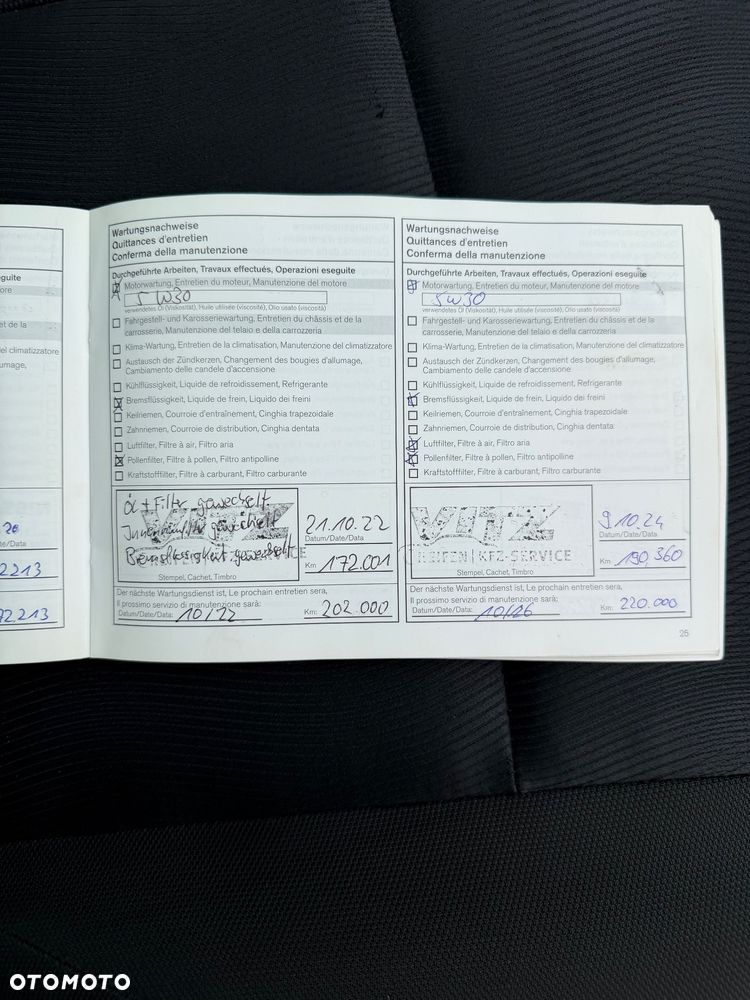 guite
ore
et de la
del climatizzatore
umage,
26
te/Data
2213
72.213
Wartungsnachweise
Quittances d'entretien
Conferma della manutenzione
Durchgeführte Arbeiten, Travaux effectués, Operazioni eseguite
Motorwartung, Entretien du moteur, Manutenzione del motore
5 W30
verwendetes Öl (Viskosität), Huile utilisée (viscosité), Olio usato (viscosità)
Fahrgestell- und Karosseriewartung, Entretien du châssis et de la
carrosserie, Manutenzione del telaio e della carrozzeria
Klima-Wartung, Entretien de la climatisation, Manutenzione del climatizzatore
Austausch der Zündkerzen, Changement des bougies d'allumage,
Cambiamento delle candele d'accensione
Kühlflüssigkeit, Liquide de refroidissement, Refrigerante
Bremsflüssigkeit, Liquide de frein, Liquido dei freini
Keilriemen, Courroie d'entraînement, Cinghia trapezoidale
Zahnriemen, Courroie de distribution, Cinghia dentata
Luftfilter, Filtre à air, Filtro aria
Pollenfilter, Filtre à pollen, Filtro antipolline
Kraftstofffilter, Filtre à carburant, Filtro carburante
Öl + Filter gewechselt
gewechselt
Bremsflüssigkeit gewechselt
VÖTZ
Stempel, Cachet, Timbro
21.10.22
Datum/Date/Data
Km 172.001
Der nächste Wartungsdienst ist, Le prochain entretien sera,
Il prossimo servizio di manutenzione sarà:
Datum/Date/Data: 10/22 Km: 202.000
Wartungsnachweise
Quittances d'entretien
Conferma della manutenzione
Durchgeführte Arbeiten, Travaux effectués, Operazioni eseguite
Motorwartung, Entretien du moteur, Manutenzione del motore
5W30
verwendetes Öl (Viskosität), Huile utilisée (viscosité), Olio usato (viscosità)
Fahrgestell- und Karosseriewartung, Entretien du châssis et de la
carrosserie, Manutenzione del telaio e della carrozzeria
Klima-Wartung, Entretien de la climatisation, Manutenzione del climatizzatore
Austausch der Zündkerzen, Changement des bougies d'allumage,
Cambiamento delle candele d'accensione
Kühlflüssigkeit, Liquide de refroidissement, Refrigerante
Bremsflüssigkeit, Liquide de frein, Liquido dei freini
Keilriemen, Courroie d'entraînement, Cinghia trapezoidale
Zahnriemen, Courroie de distribution, Cinghia dentata
Luftfilter, Filtre à air, Filtro aria
Pollenfilter, Filtre à pollen, Filtro antipolline
Kraftstofffilter, Filtre à carburant, Filtro carburante
VÖTZ
REIFEN | KFZ-SERVICE
Stempel, Cachet, Timbro
9.10.24
Datum/Date/Data
Km 190,360
Der nächste Wartungsdienst ist, Le prochain entretien sera,
Il prossimo servizio di manutenzione sarà:
Datum/Date/Data: 10/26 Km: 220.000
25
OTOMOTO